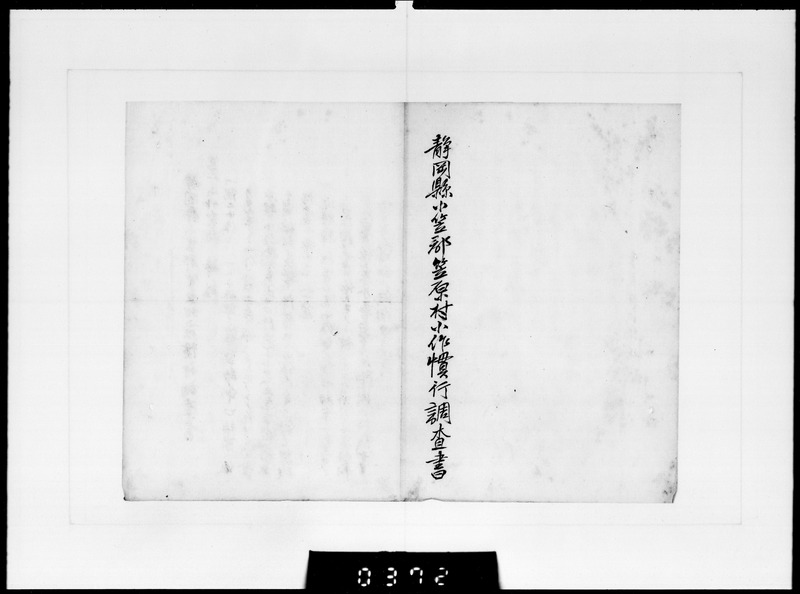 静岡縣小笠郡笠原村小作慣行調査書
0372